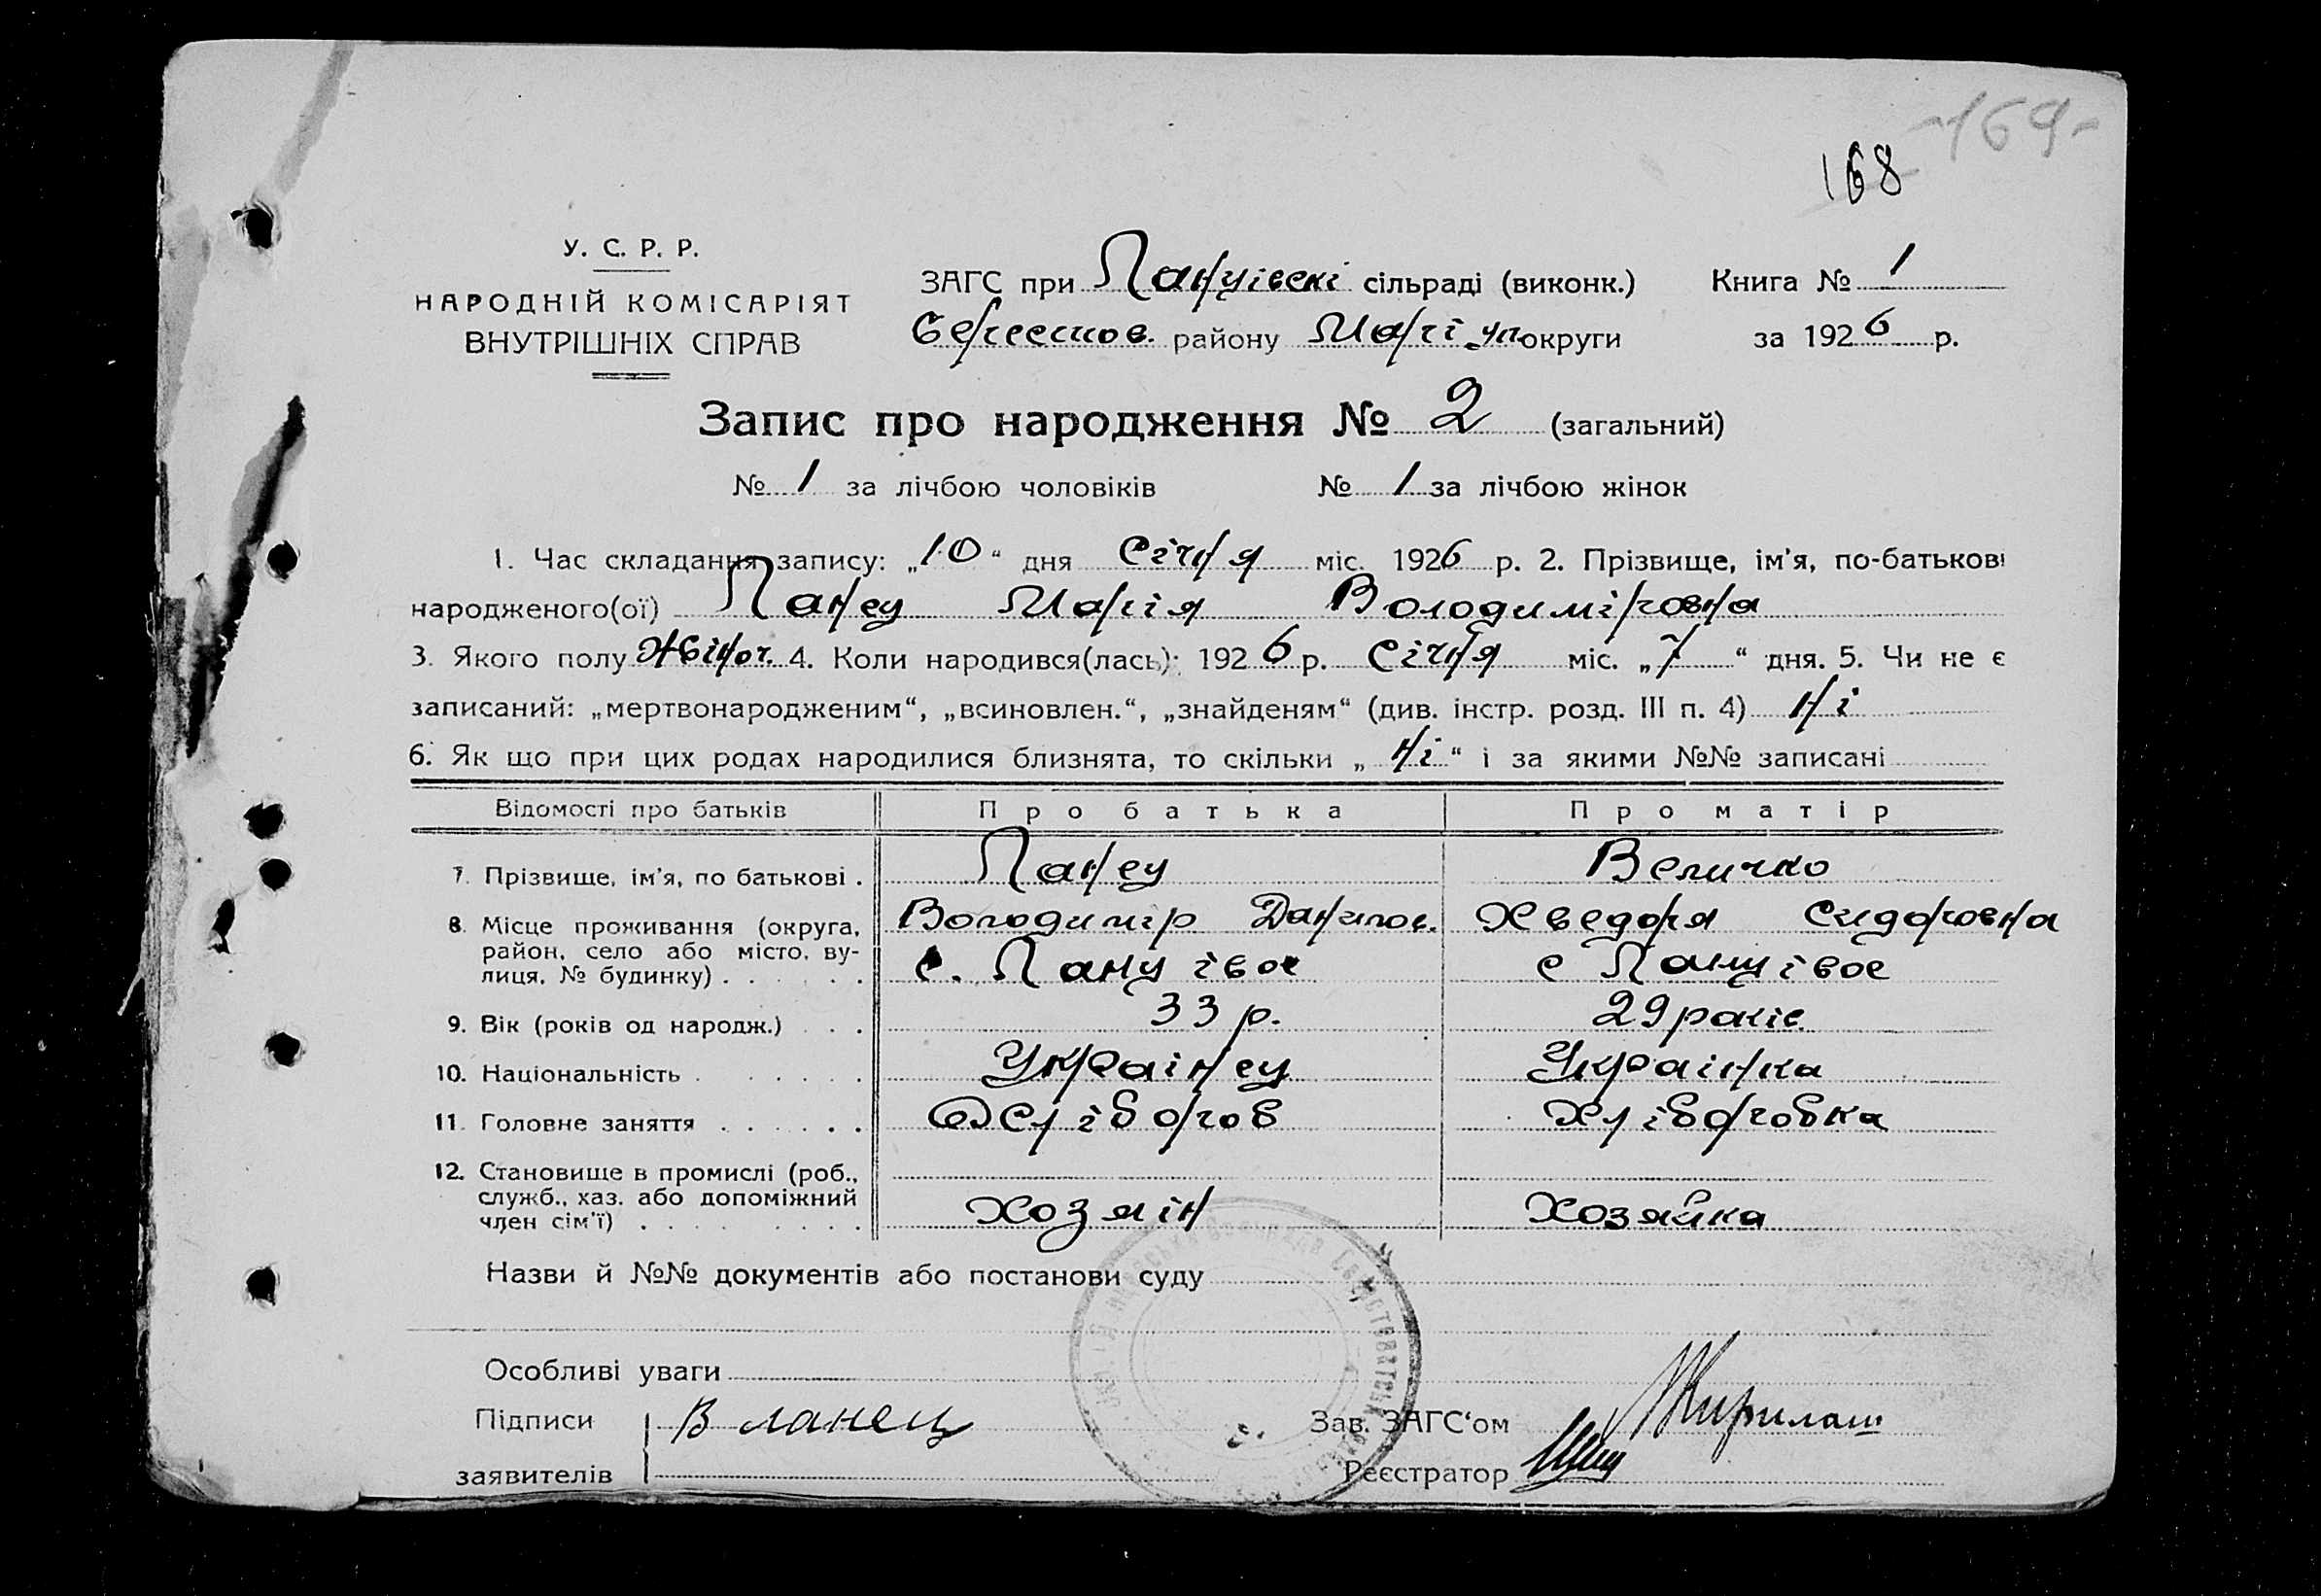 -169-
168
У. С. Р. Р.
НАРОДНІЙ КОМІСАРІЯТ
ВНУТРІШНІХ СПРАВ
ЗАГС при Ланцівскі сільраді (виконк.) Книга № 1
району Маріуп. округи за 1926 р.
Запис про народження № 2 (загальний)
№ 1 за лічбою чоловіків № 1 за лічбою жінок
1. Час складання запису: „10“ дня Січня міс. 1926 р. 2. Прізвище, ім'я, по-батькові
народженого(ої) Ланец Марія Володиміровна
3. Якого полу Жіноч. 4. Коли народився(лась): 1926 р. Січня міс. „7“ дня. 5. Чи не є
записаний: „мертвонародженим“, „всиновлен.“, „знайденям“ (див. інстр. розд. III п. 4) Ні
6. Як що при цих родах народилися близнята, то скільки „Ні“ і за якими №№ записані
Відомості про батьків Про батька Про матір
7. Прізвище, ім'я, по батькові . Ланец Величко
Володимір Данилов. Хведоря Сидоровна
8. Місце проживання (округа, район, село або місто, вулиця, № будинку) . . . . . . с. Ланцівое с Ланцівое
9. Вік (років од народж.) . . . 33 р. 29 років
10. Національність . . . . . . Українец Українка
11. Головне заняття . . . . . . Хліборов Хліборобка
12. Становище в промислі (роб., служб., хаз. або допоміжний член сім'ї) . . . . . . . . Хозяін Хозяйка
Назви й №№ документів або постанови суду
Особливі уваги
Підписи В Ланец Зав. ЗАГС'ом
заявителів Реєстратор